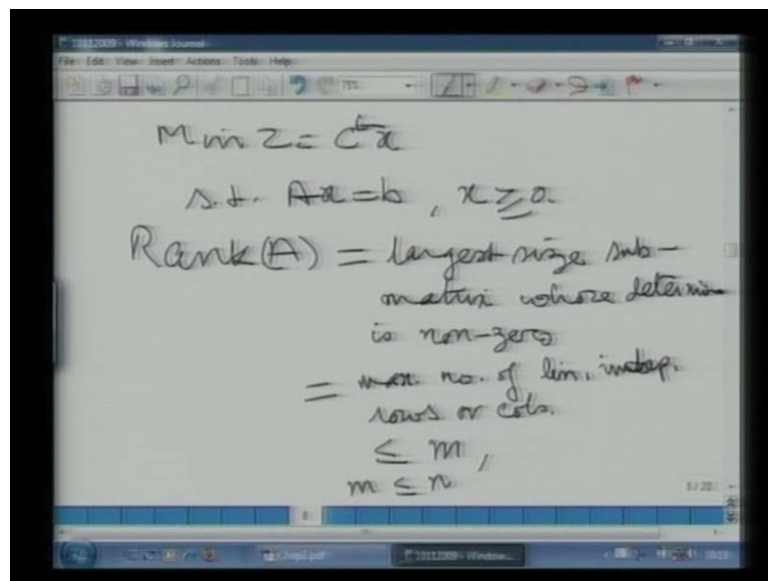 10112009 - Windows Journal
File Edit View Insert Actions Tools Help
75%
Min Z = Cᵗx
s.t. Ax = b, x ≥ 0
Rank(A) = largest size sub-
matrix whose determin
is non-zero
= max. no. of lin. indep.
rows or cols.
≤ m,
m ≤ n
8
8 / 20
Chap2.pdf
10112009 - Window...